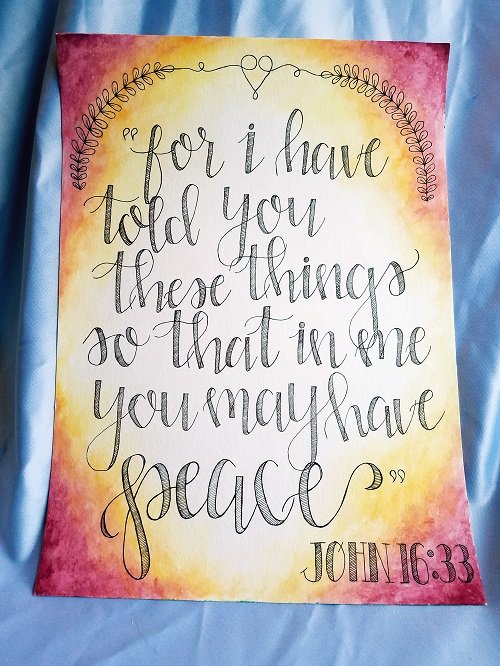 "for i have
told you
these things
so that in me
you may have
peace"
JOHN 16:33